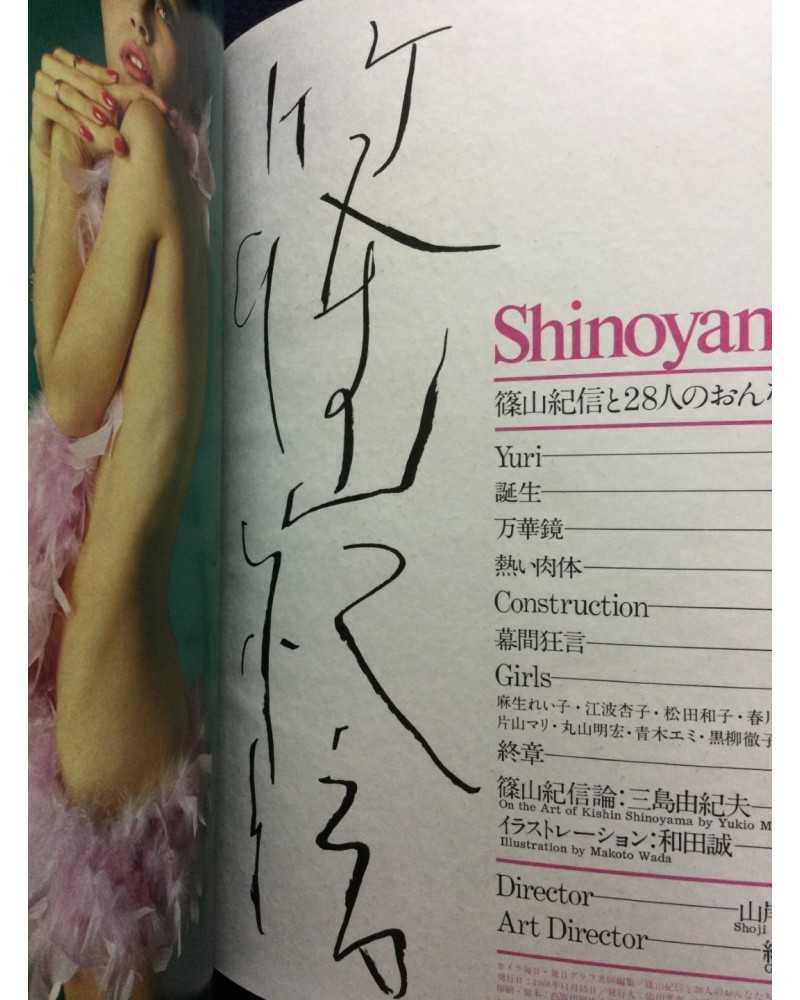 篠山紀信
Shinoyam
篠山紀信と28人のおん
Yuri
誕生
万華鏡
熱い肉体
Construction
幕間狂言
Girls
麻生れい子・江波杏子・松田和子・春川
片山マリ・丸山明宏・青木エミ・黒柳徹子
終章
篠山紀信論:三島由紀夫
On the Art of Kishin Shinoyama by Yukio M
イラストレーション:和田誠
Illustration by Makoto Wada
Director 山岸
Shoji
Art Director
カメラ毎日・毎日グラフ共同編集/篠山紀信と28人のおんなたち